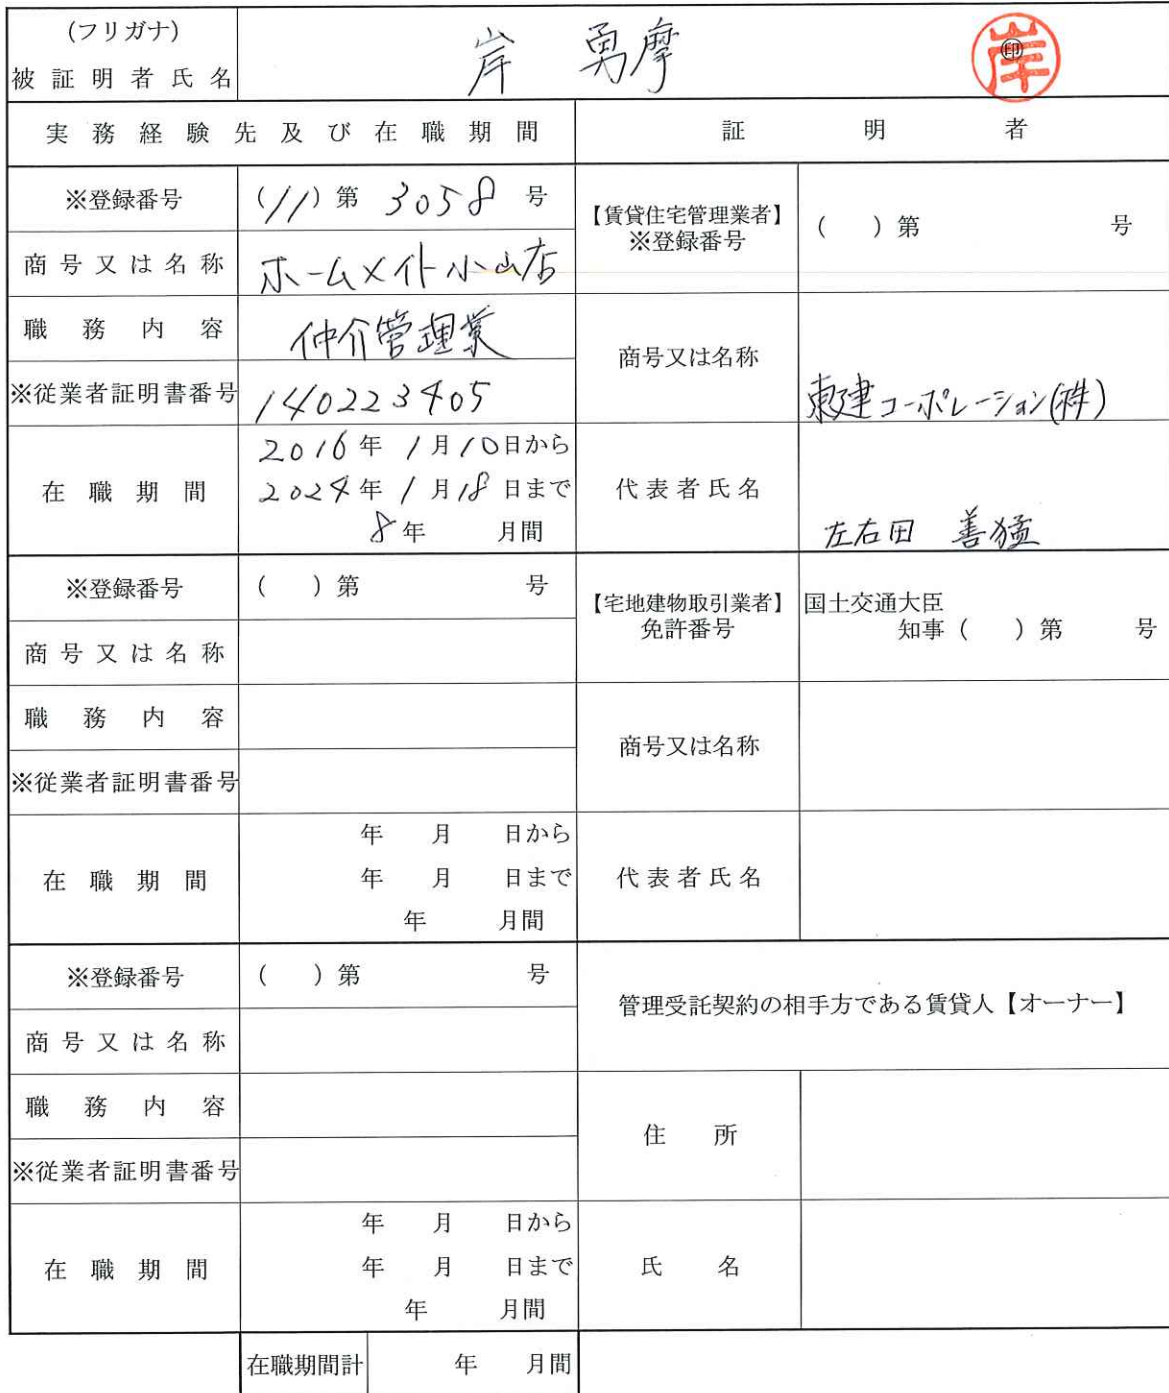 (フリガナ)
被証明者氏名 岸 勇摩 ㊞ 岸
実務経験先及び在職期間 証明者
※登録番号 (11)第 3058 号 【賃貸住宅管理業者】※登録番号 ( )第 号
商号又は名称 ホームメイト小山店
職務内容 仲介管理業 商号又は名称 東建コーポレーション(株)
※従業者証明書番号 140223405
在職期間 2016年 1月10日から
2024年 1月18日まで
8年 月間
代表者氏名 左右田 善猛
※登録番号 ( )第 号 【宅地建物取引業者】免許番号 国土交通大臣
知事( )第 号
商号又は名称
職務内容 商号又は名称
※従業者証明書番号
在職期間 年 月 日から
年 月 日まで
年 月間
代表者氏名
※登録番号 ( )第 号 管理受託契約の相手方である賃貸人【オーナー】
商号又は名称
職務内容 住所
※従業者証明書番号
在職期間 年 月 日から
年 月 日まで
年 月間
氏名
在職期間計 年 月間